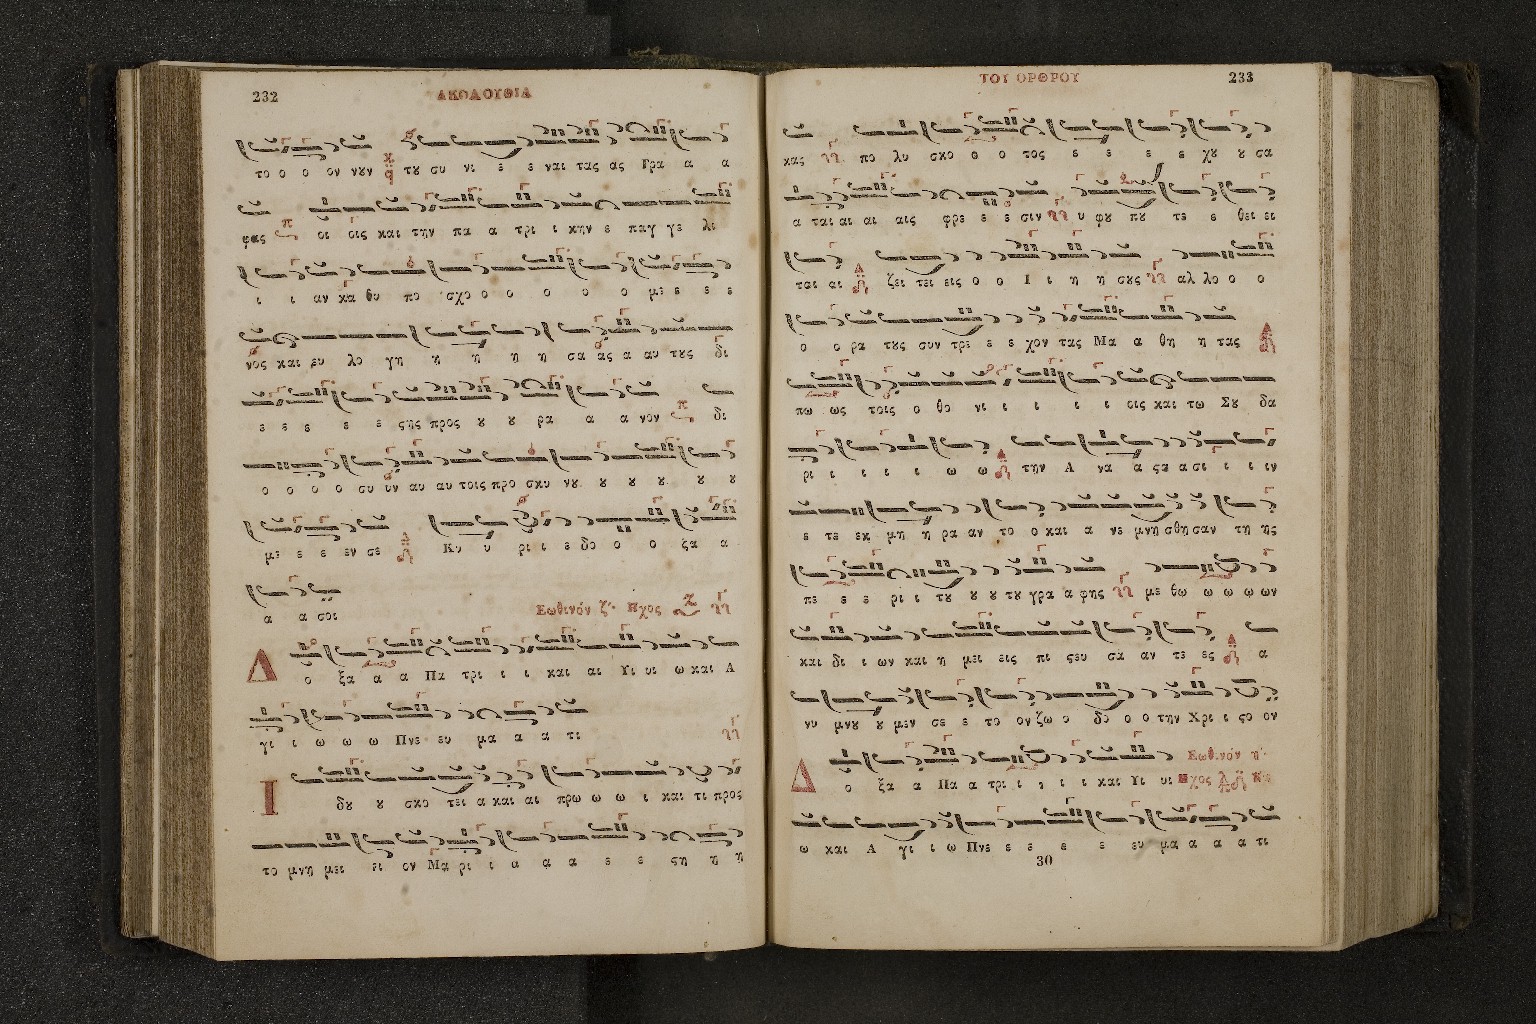 232
ΑΚΟΛΟΥΘΙΑ
το ο ο ον νυν τȣ συ νι ε ε ναι τας ας Γρα α α
φας οἱ οις και την πα α τρι ι κην ε παγ γε λι
ι ι αν κα θο πο σχο ο ο ο ο ο με ε ε ε
νος και ευ λο γη ȣ η η η σα ας α αυ τȣς δι
ε ε ε ε ε ςης προς ȣ ȣ ρα α α νον δι
ο ο ο ο συ υν αυ αυ τοις προ σκυ νȣ ȣ ȣ ȣ ȣ ȣ
με ε ε εν σε Κυ υ ρι ι ε δο ο ο ξα α
α α σοι
Εωθινόν ζʹ· Ηχος
Δ ο ξα α α Πα τρι ι ι και αι Υι υι ω και Α
γι ι ω ω ω Πνε ευ μα α α τι
Ι δȣ ȣ σκο τει α και αι πρω ω ω ι και τι προς
το μνη μει ει ον Μα ρι ι α α α ε ε ςη η η
ΤΟΥ ΟΡΘΡΟΥ
233
κας πο λυ σκο ο ο τος ε ε ε ε χȣ ȣ σα
α ται αι αι αις φρε ε ε σιν υ φȣ πȣ τε ε θει ει
ται αι ζει τει εις ο ο Ι ι η η σȣς αλ λο ο ο
ο ο ρα τȣς συν τρε ε ε χον τας Μα α θη η τας
πω ως τοις ο θο νι ι ι ι ι ι οις και τω Σȣ δα
ρι ι ι ι ι ω ω την Α να α ςα α σι ι ι ιν
ε τε εκ μη η ρα αν το ο και α νε μνη σθη σαν τη ης
πε ε ε ρι ι τȣ ȣ ȣ τȣ γρα α φης με θω ω ω ω ων
και δι ι ων και η μει εις πι ςευ σα αν τε ες α
νυ μνȣ ȣ μεν σε ε το ον ζω ο δο ο ο την Χρι ι ςο ον
Εωθινόν ηʹ·
Δ ο ξα α Πα α τρι ι ι ι ι και Υι υι Ηχος
ω και Α γι ι ω Πνε ε ε ε ε ευ μα α α α τι
30